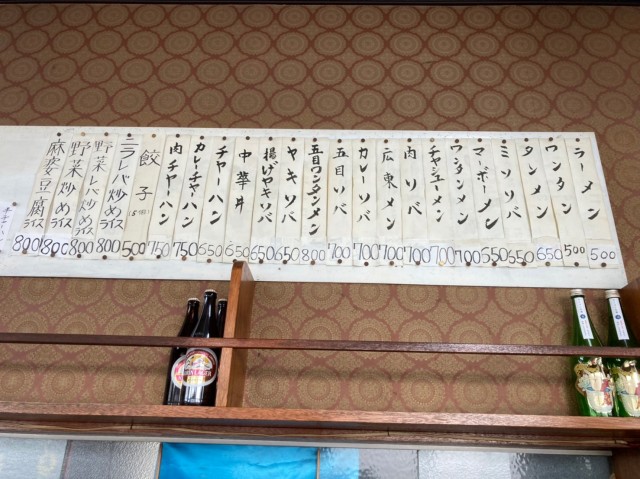 ラーメン 500
ワンタン 500
タンメン 650
ミソソバ 650
マーボーメン 650
ワンタンメン 700
チャシューメン 700
肉ソバ 700
広東メン 700
カレーソバ 700
五目ソバ 700
五目ワンタンメン 800
ヤキソバ 650
揚げヤキソバ 650
中華丼 650
チャーハン 650
カレーチャーハン 750
肉チャーハン 750
餃子 500
ニラレバ炒めライス 800
野菜レバ炒めライス 800
野菜炒めライス 800
麻婆豆腐ライス 800
KIRIN LAGER